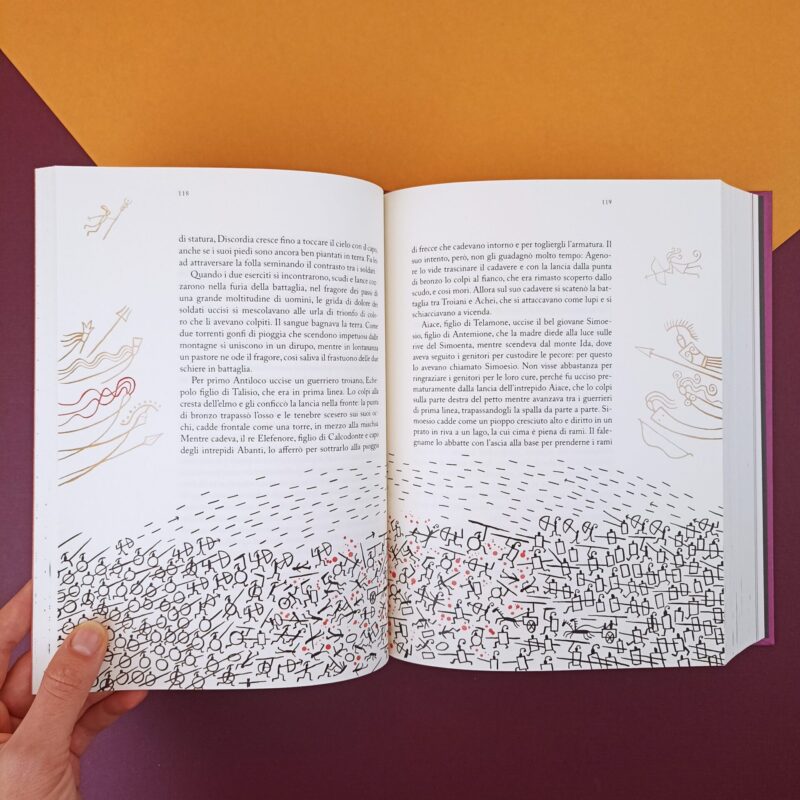 118
di statura, Discordia cresce fino a toccare il cielo con il capo,
anche se i suoi piedi sono ancora ben piantati in terra. Fu lei
ad attraversare la folla seminando il contrasto tra i soldati.
Quando i due eserciti si incontrarono, scudi e lance coz-
zarono nella furia della battaglia, nel fragore dei passi di
una grande moltitudine di uomini, le grida di dolore dei
soldati uccisi si mescolavano alle urla di trionfo di colo-
ro che li avevano colpiti. Il sangue bagnava la terra. Come
due torrenti gonfi di pioggia che scendono impetuosi dalle
montagne si uniscono in un dirupo, mentre in lontananza
un pastore ne ode il fragore, così saliva il frastuono delle due
schiere in battaglia.
Per primo Antiloco uccise un guerriero troiano, Eche-
polo figlio di Talisio, che era in prima linea. Lo colpì alla
cresta dell'elmo e gli conficcò la lancia nella fronte: la punta
di bronzo trapassò l'osso e le tenebre scesero sui suoi oc-
chi, cadde frontale come una torre, in mezzo alla mischia.
Mentre cadeva, il re Elefenore, figlio di Calcodonte e capo
degli intrepidi Abanti, lo afferrò per sottrarlo alla pioggia
119
di frecce che cadevano intorno e per togliergli l'armatura. Il
suo intento, però, non gli guadagnò molto tempo: Ageno-
re lo vide trascinare il cadavere e con la lancia dalla punta
di bronzo lo colpì al fianco, che era rimasto scoperto dallo
scudo, e così morì. Allora sul suo cadavere si scatenò la bat-
taglia tra Troiani e Achei, che si attaccavano come lupi e si
schiacciavano a vicenda.
Aiace, figlio di Telamone, uccise il bel giovane Simoe-
sio, figlio di Antemione, che la madre diede alla luce sulle
rive del Simoenta, mentre scendeva dal monte Ida, dove
aveva seguito i genitori per custodire le pecore: per questo
lo avevano chiamato Simoesio. Non visse abbastanza per
ringraziare i genitori per le loro cure, perché fu ucciso pre-
maturamente dalla lancia dell'intrepido Aiace, che lo colpì
sulla parte destra del petto mentre avanzava tra i guerrieri
di prima linea, trapassandogli la spalla da parte a parte. Si-
moesio cadde come un pioppo cresciuto alto e diritto in un
prato in riva a un lago, la cui cima è piena di rami. Il fale-
gname lo abbatte con l'ascia alla base per prenderne i rami